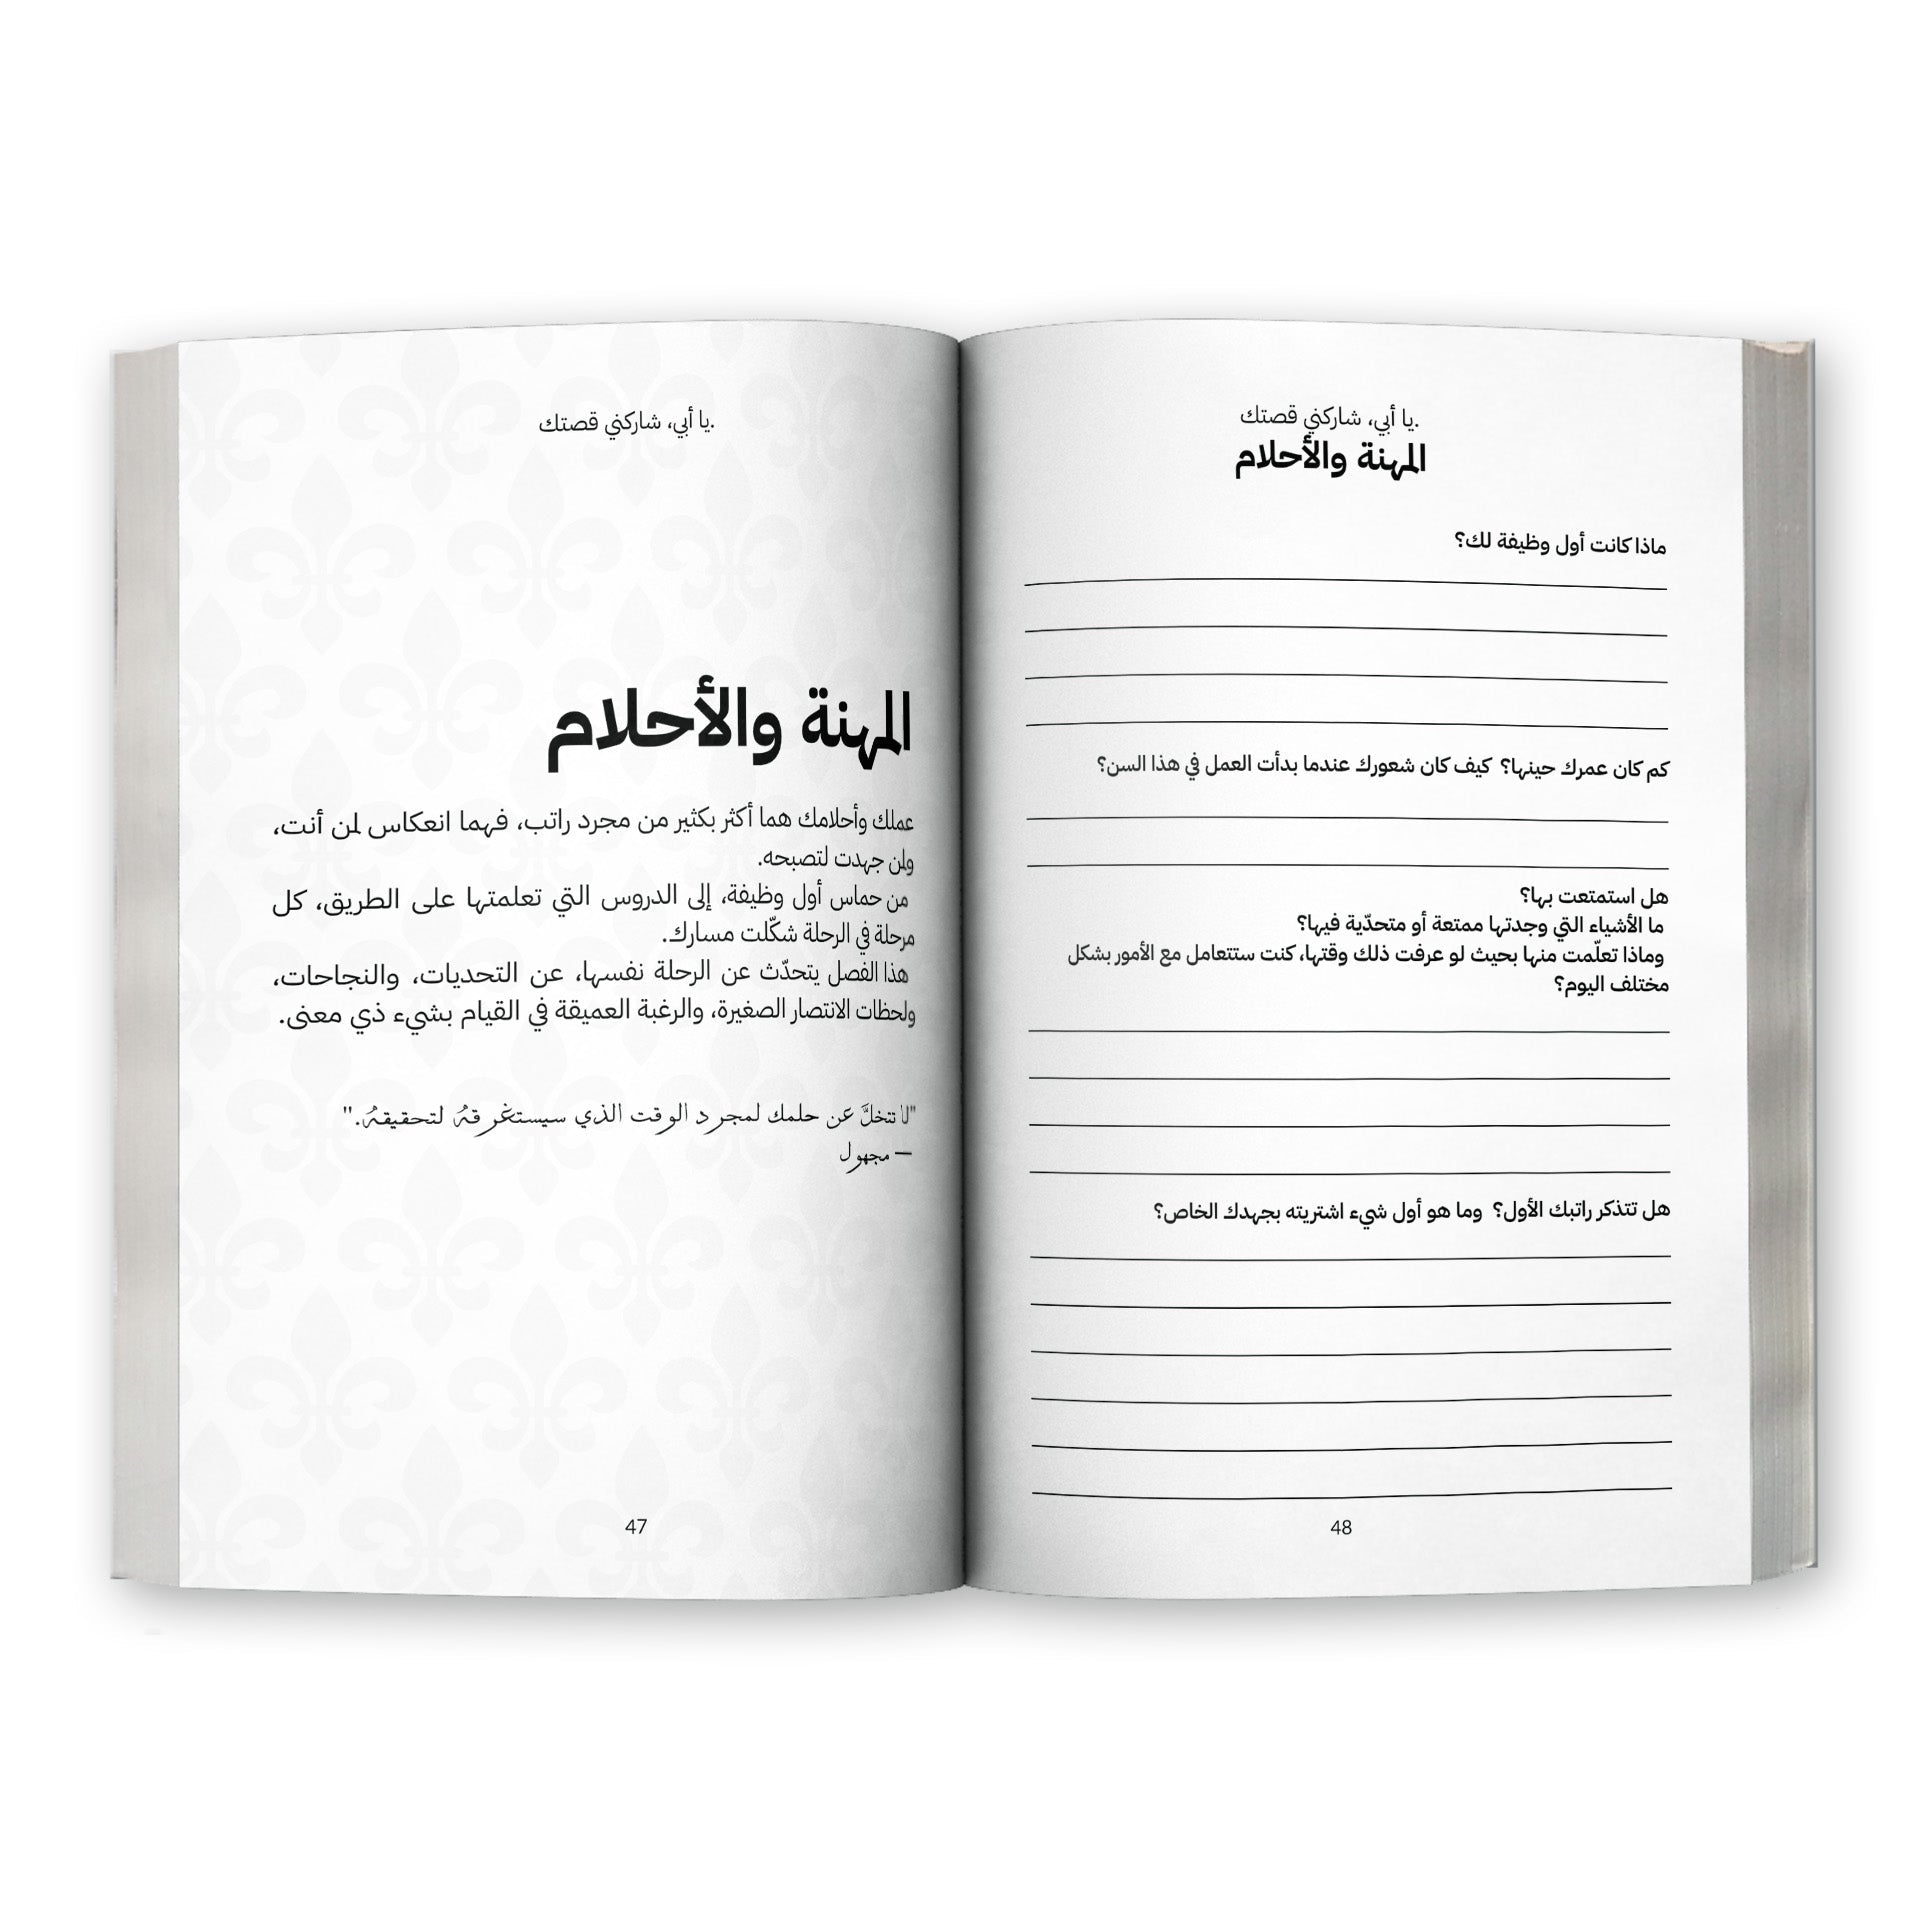 يا أبي، شاركني قصتك.
المهنة والأحلام
عملك وأحلامك هما أكثر بكثير من مجرد راتب، فهما انعكاس لمن أنت،
ولمن جهدت لتصبحه.
من حماس أول وظيفة، إلى الدروس التي تعلمتها على الطريق، كل
مرحلة في الرحلة شكّلت مسارك.
هذا الفصل يتحدّث عن الرحلة نفسها، عن التحديات، والنجاحات،
ولحظات الانتصار الصغيرة، والرغبة العميقة في القيام بشيء ذي معنى.
"لا تتخلَّ عن حلمك لمجرد الوقت الذي سيستغرقهُ لتحقيقهُ."
— مجهول
47
يا أبي، شاركني قصتك.
المهنة والأحلام
ماذا كانت أول وظيفة لك؟
كم كان عمرك حينها؟ كيف كان شعورك عندما بدأت العمل في هذا السن؟
هل استمتعت بها؟
ما الأشياء التي وجدتها ممتعة أو متحدّية فيها؟
وماذا تعلّمت منها بحيث لو عرفت ذلك وقتها، كنت ستتعامل مع الأمور بشكل
مختلف اليوم؟
هل تتذكر راتبك الأول؟ وما هو أول شيء اشتريته بجهدك الخاص؟
48